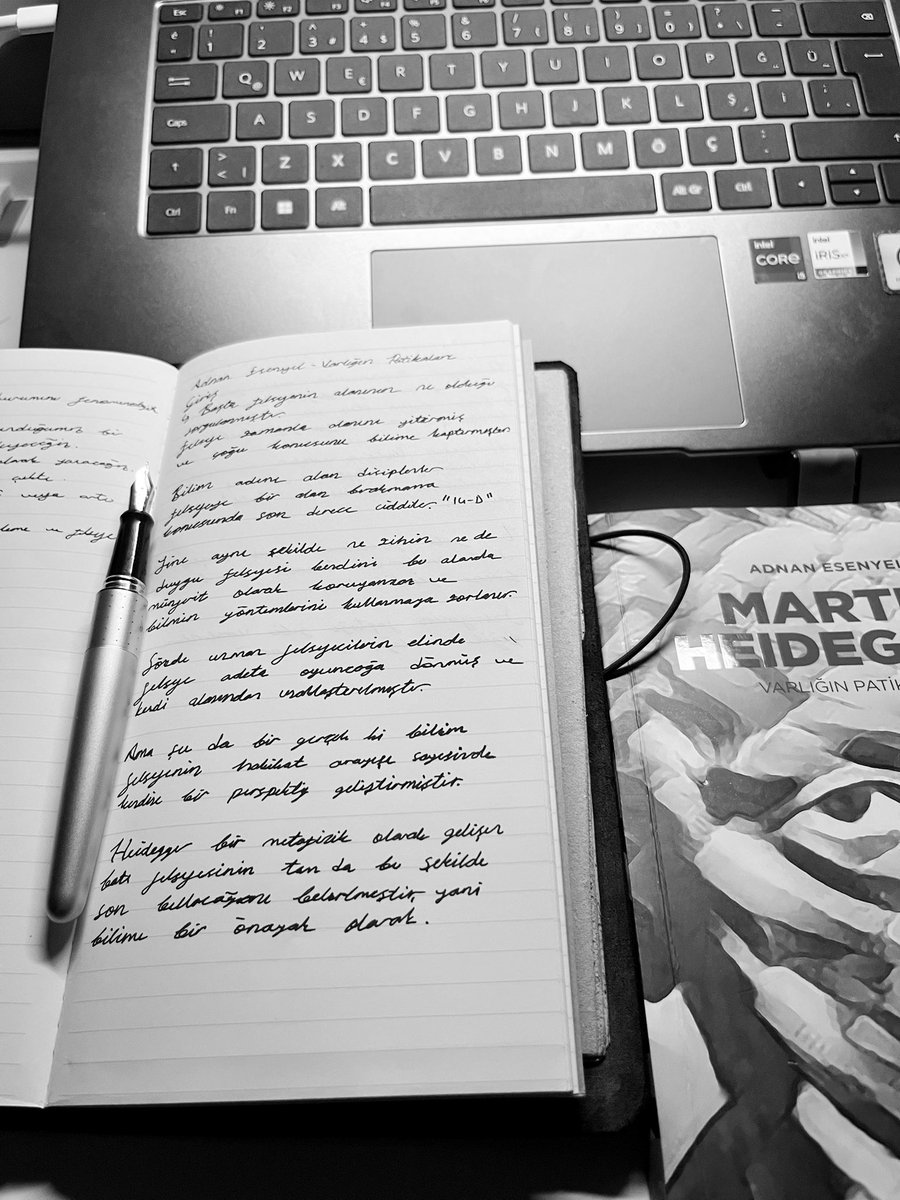 Esc F1 F2 F3 F4 F5 F6 F7 F8
é 1 2 3 4 5 6 7 8 9 0
Q W E R T Y U I O P Ğ Ü
Caps A S D F G H J K L Ş İ
Z X C V B N M Ö Ç
Ctrl Fn Alt Alt Gr Ctrl
intel CORE i5
intel IRIS Xe GRAPHICS
Adnan Esenyel - Varlığın Patikaları
Giriş
Başta felsefenin alanının ne olduğu
sorgulanmıştır.
felsefe zamanla alanını yitirmiş
ve çoğu konusunu bilime kaptırmıştır.
Bilim adını alan disiplenler
felsefeye bir alan bırakmama
konusunda son derece ciddiler. "14-D"
Yine aynı şekilde ne zihin ne de
duygu felsefesi kendini bu alanda
münferit olarak koruyamaz ve
bilmin yöntemlerini kullanmaya zorlanır.
Sözde uzman felsefecilerin elinde
felsefe adeta oyuncağa dönmüş ve
kendi alanından uzaklaştırılmıştır.
Ama şu da bir gerçek ki bilim
felsefenin hakikat arayışı sayesinde
kendine bir perspektif geliştirmiştir.
Heidegger bir metafizik olarak gelişen
batı felsefesinin tam da bu şekilde
son bulacağını belirtmiştir, yani
bilime bir önayak olarak.
ADNAN ESENYEL
MARTI
HEIDEG
VARLIĞIN PATİK